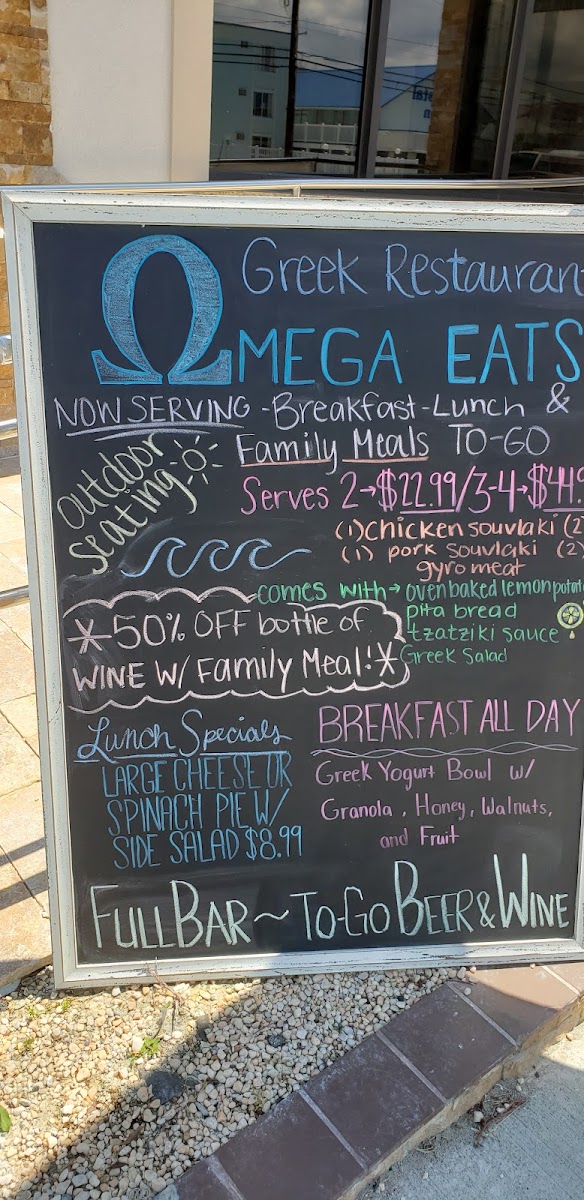 Greek Restauran
ΩMEGA EATS
NOW SERVING - Breakfast - Lunch &
Family Meals TO-GO
outdoor
seating
Serves 2→$22.99/3-4→$44.9
(1) chicken souvlaki (2
(1) pork souvlaki (2)
gyro meat
comes with→ oven baked lemon potato
pita bread
tzatziki sauce
Greek Salad
*50% OFF bottle of
WINE W/ Family Meal!*
Lunch Specials
LARGE CHEESE OR
SPINACH PIE W/
SIDE SALAD $8.99
BREAKFAST ALL DAY
Greek Yogurt Bowl w/
Granola, Honey, Walnuts,
and Fruit
FULL BAR ~ TO-GO BEER & WINE